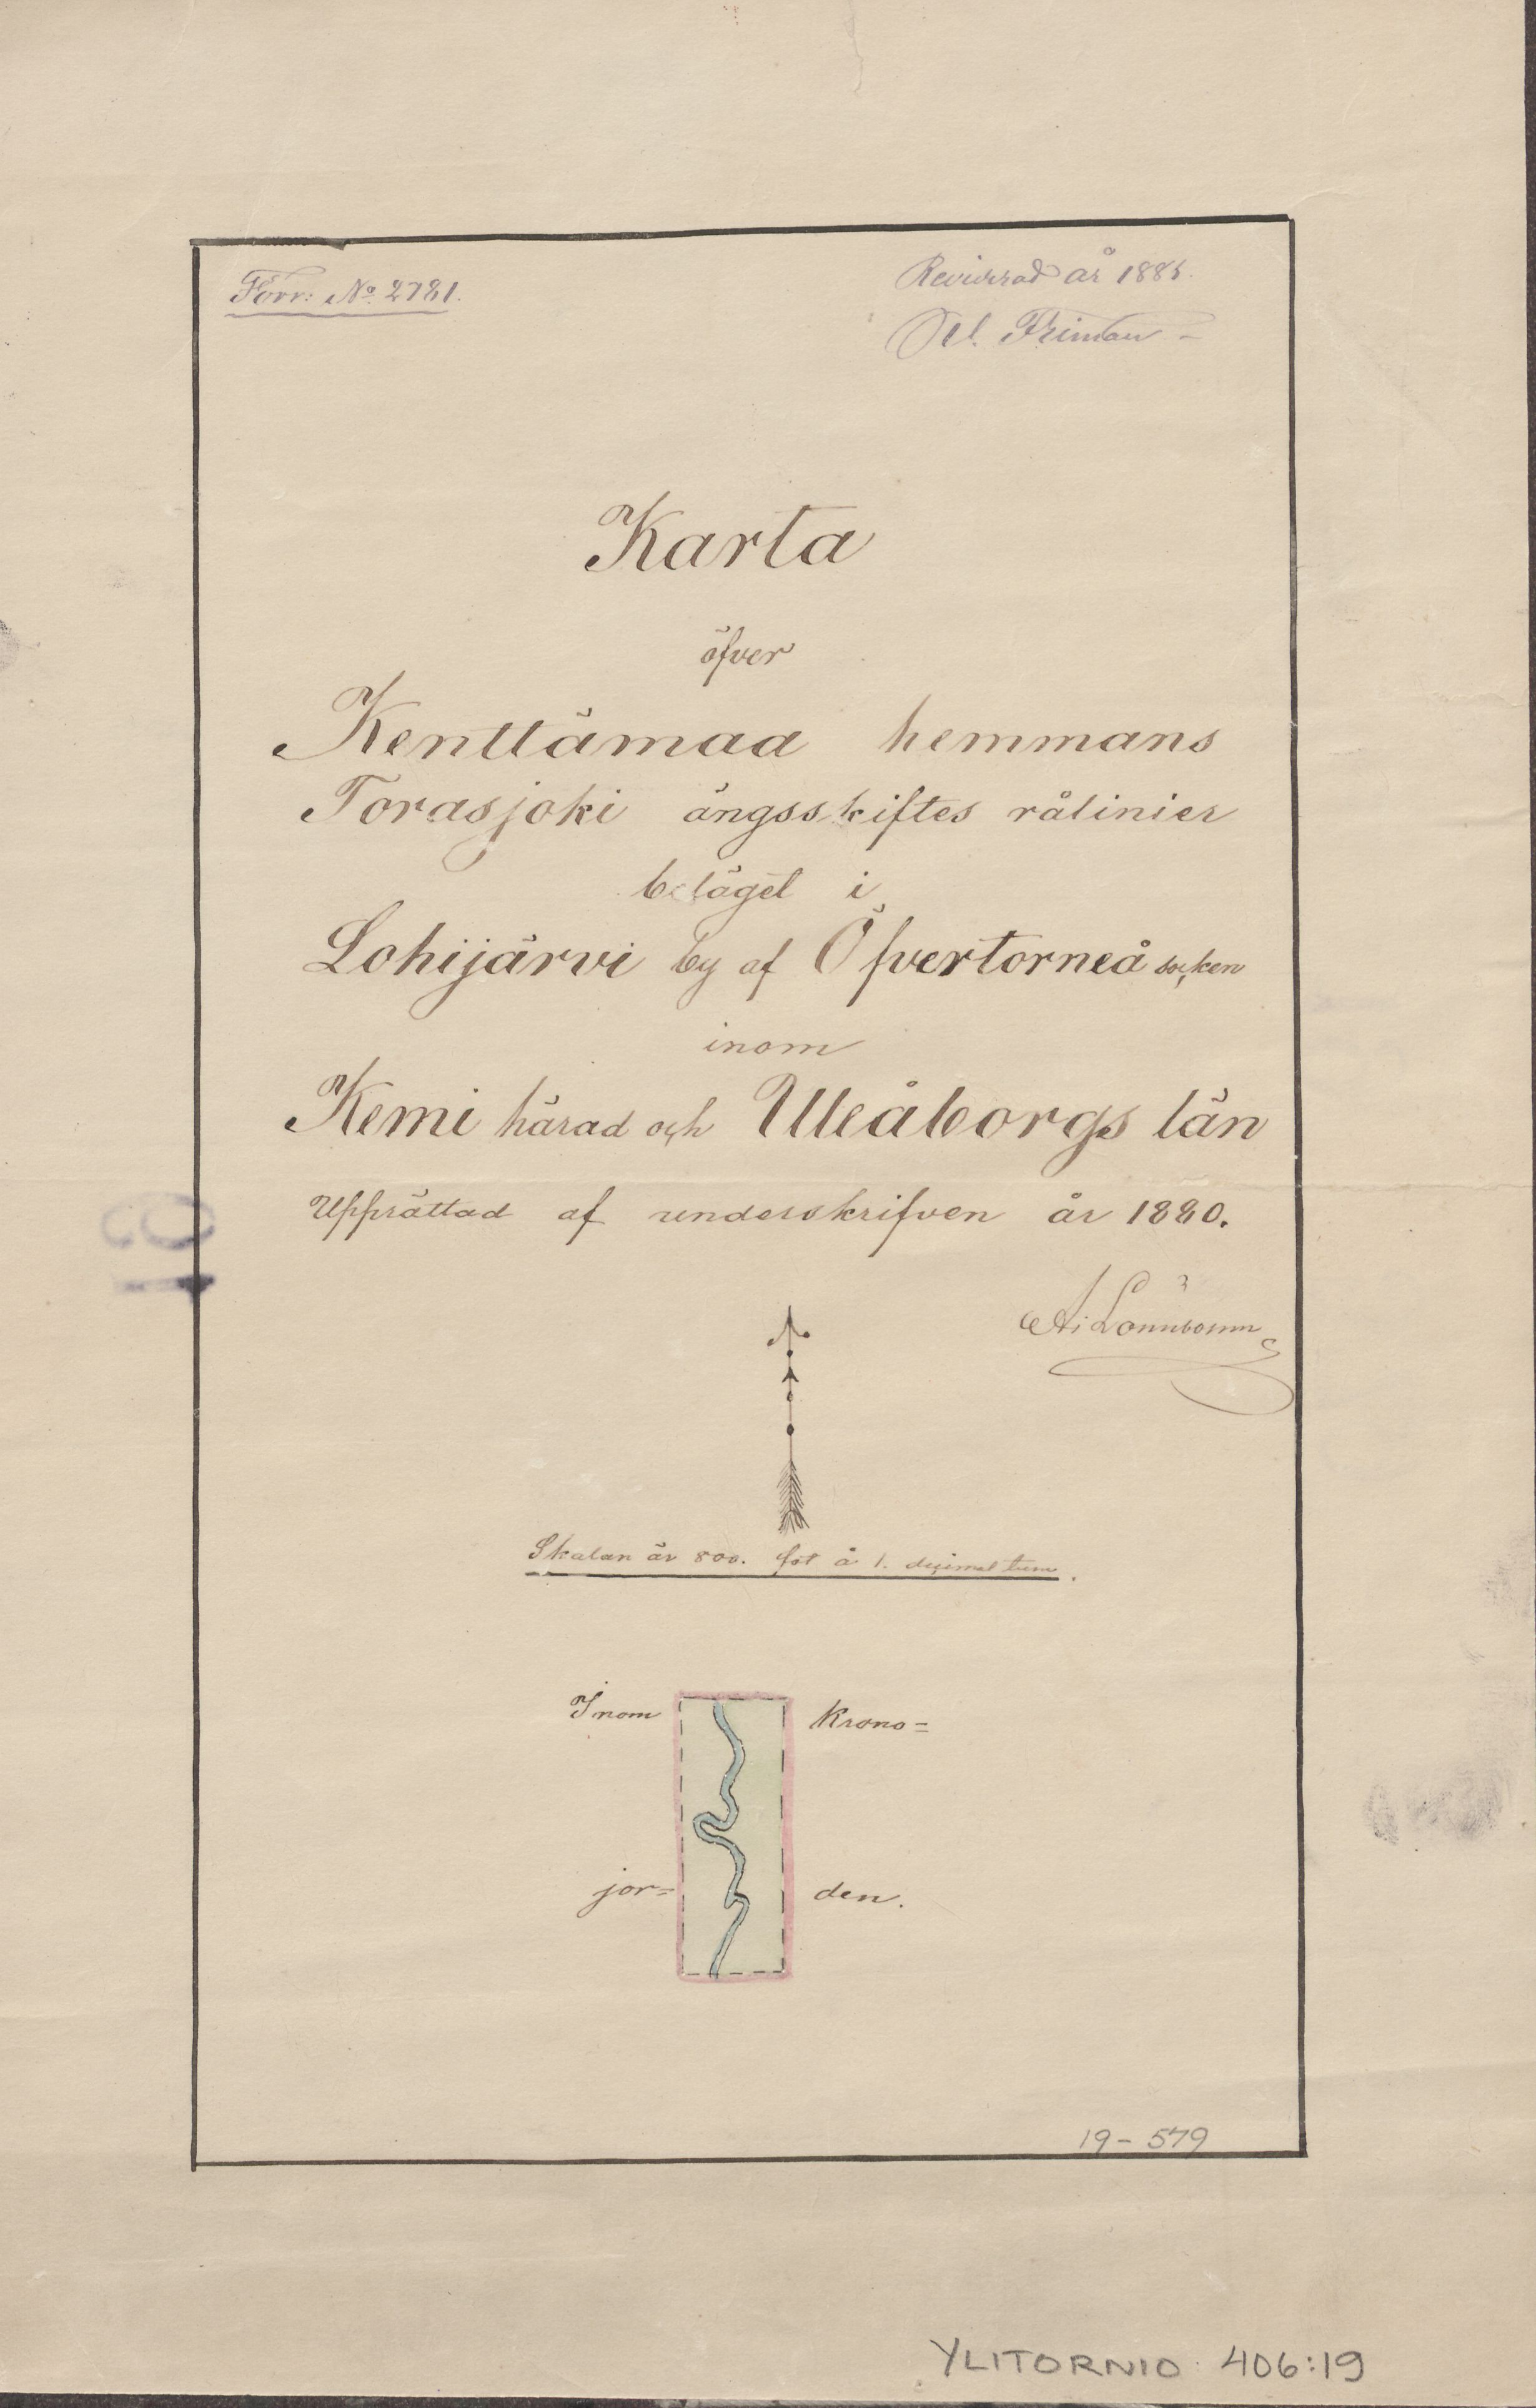 Förr: No. 2781.
Reviderad år 1885.
Karta
öfver
Kenttämaa hemmans
Torasjoki ängsskiftes rålinier
belägel i
Lohijärvi by af Öfvertorneå socken
inom
Kemi härad och Uleåborgs län
Upprättad af underskrifven år 1880.
Skalan är 800. fot å 1. decimal tum.
Inom Krono=
jor= den.
19-579
YLITORNIO 406:19
19